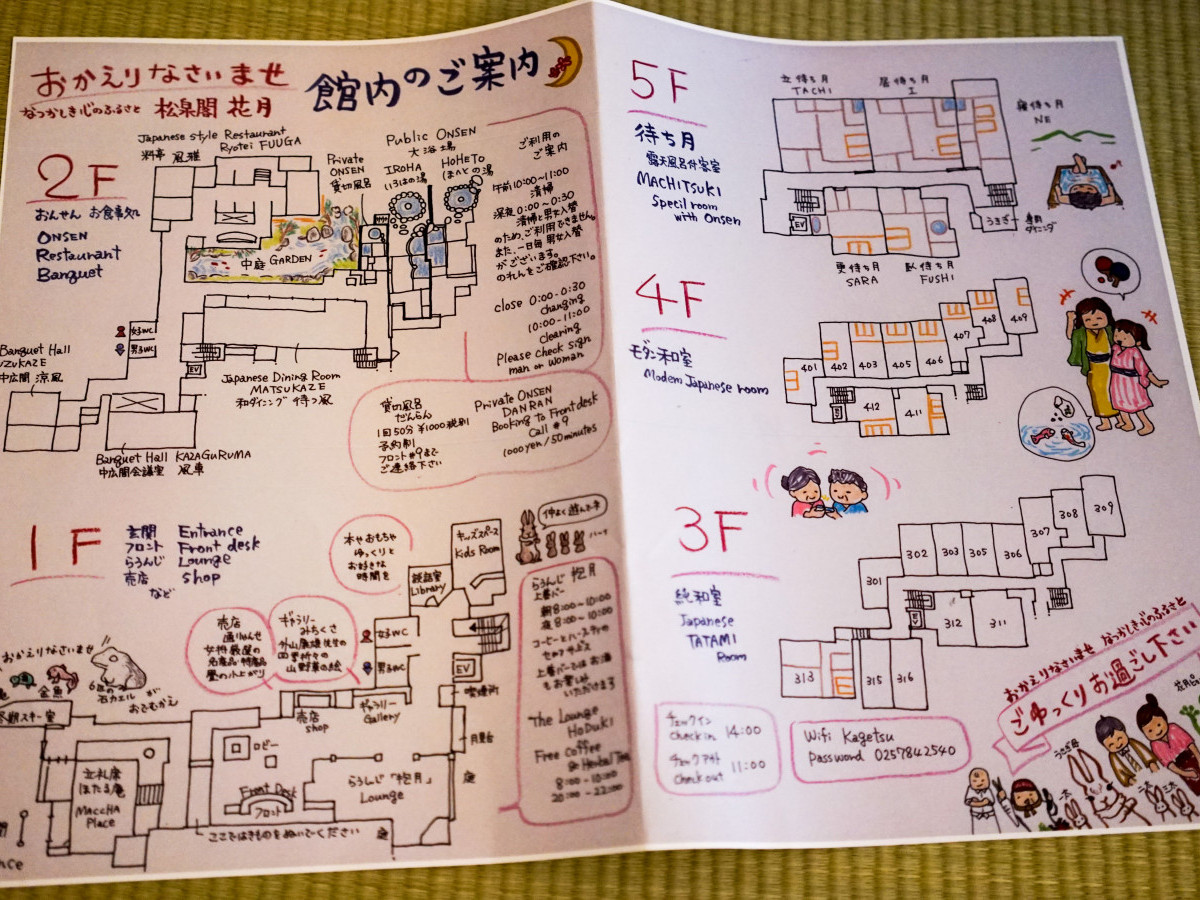 おかえりなさいませ
なつかしき心のふるさと 松泉閣 花月
館内のご案内
2F
おんせん お食事処
ONSEN
Restaurant
Banquet
Japanese style Restaurant
Ryotei FUUGA
料亭 風雅
Private
ONSEN
貸切風呂
Public ONSEN
大浴場
IROHA
いろはの湯
HoHETo
ほへとの湯
中庭 GARDEN
女子WC
男子WC
EV
Banquet Hall
中広間 涼風
Japanese Dining Room
MATSUKAZE
和ダイニング 待つ風
Banquet Hall KAZAGURUMA
中広間会議室 風車
ご利用の
ご案内
午前10:00~11:00
清掃
深夜0:00~0:30
清掃と男女入替
のため、ご利用できません。
また、一日毎 男女入替
がございます。
のれんをご確認下さい。
close 0:00-0:30
changing
10:00-11:00
clearing
Please check sign
man or woman
貸切風呂
だんらん
1回50分 ¥1000税別
予約制
フロント#9まで
ご連絡下さい
Private ONSEN
DANRAN
Booking to Front desk
Call #9
1000yen/50minutes
1F
玄関 Entrance
フロント Front desk
らうんじ Lounge
売店 shop
など
本やおもちゃ
ゆっくりと
お好きな
時間を
キッズスペース
Kids Room
談話室
Library
仲よく遊んでネ
ハーイ
売店
通りゃんせ
女将厳選の
名産品・特産品
ギャラリー
みちくさ
外山康雄先生の
四季折々の
山野草の絵
女子WC
男子WC
EV
喫煙所
月見台
庭
おかえりなさいませ
金魚
石カエル が
おでむかえ
冬期スキー室
売店
shop
ギャラリー
Gallery
ロビー
Front Desk
フロント
らうんじ「抱月」
Lounge
立礼席
ほたる庵
MaccHA
Place
ここではきものをぬいでください
らうんじ 抱月
上善バー
朝8:00~10:00
夜8:00~10:00
コーヒーとハーブティの
セルフサービス
上善バーではお酒
もお買い求め
いただけます
The Lounge
HoDUKI
Free Coffee
& Herbal Tea
8:00-10:00
20:00-22:00
5F
待ち月
露天風呂付客室
MACHITSUKI
Specil room
with Onsen
立待ち月
TACHI
居待ち月
I
寝待ち月
NE
EV
更待ち月
SARA
臥待ち月
FUSHI
うさぎ
専用
ダイニング
4F
モダン和室
Modern Japanese room
401
402
403
405
406
407
408
409
412
411
3F
純和室
Japanese
TATAMI
Room
301
302
303
305
306
307
308
309
EV
312
311
313
315
316
チェックイン
Check in 14:00
チェックアウト
Check out 11:00
Wifi Kagetsu
Password 0257842540
おかえりなさいませ なつかしき心のふるさと
ごゆっくりお過ごし下さい